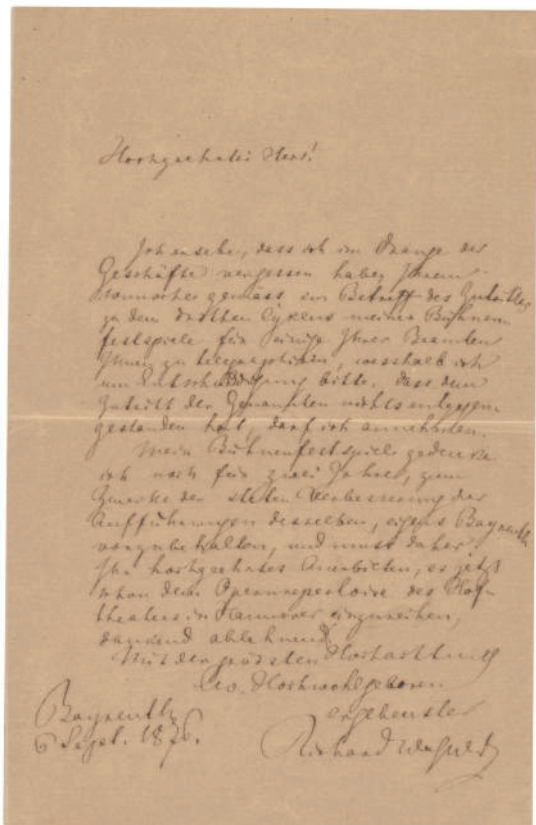 Hochgeehrter Herr!
Ich ersehe, dass ich im Drange der
Geschäfte vergessen habe, Ihrem
Wunsche gemäss, in Betreff des Zutrittes
zu dem dritten Cyklus meiner Bühnen
festspiele für einige Ihrer Beamten
Ihnen zu telegraphiren, weshalb ich
um Entschuldigung bitte. Dass dem
Zutritt der Genannten nichts entgegen
gestanden hat, darf ich annehmen.
Mein Bühnenfestspiel gedenke
ich noch für zwei Jahre, zum
Zwecke der steten Verbesserung der
Aufführungen desselben, eigens Bayreuth
vorzubehalten, und muss daher
Ihr hochgeehrtes Anerbieten, es jetzt
schon dem Opernrepertoire des Hof-
theaters in Hannover einzureihen,
dankend ablehnend.
Mit der grössten Hochachtung
Ew. Hochwohlgeboren
ergebenster
Bayreuth
6 Sept. 1876.
Richard Wagner